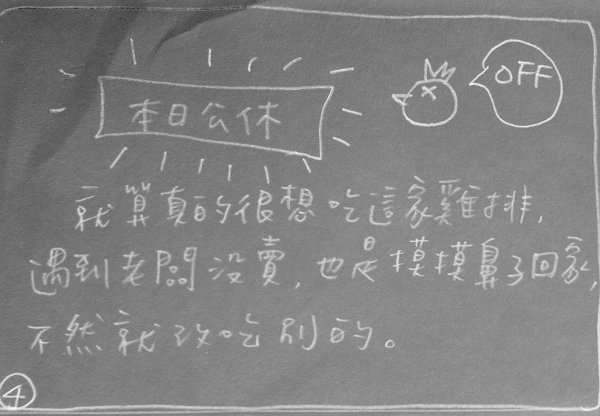 本日公休
OFF
就算真的很想吃這家雞排,
遇到老闆沒賣,也是摸摸鼻子回家,
不然就改吃別的。
4